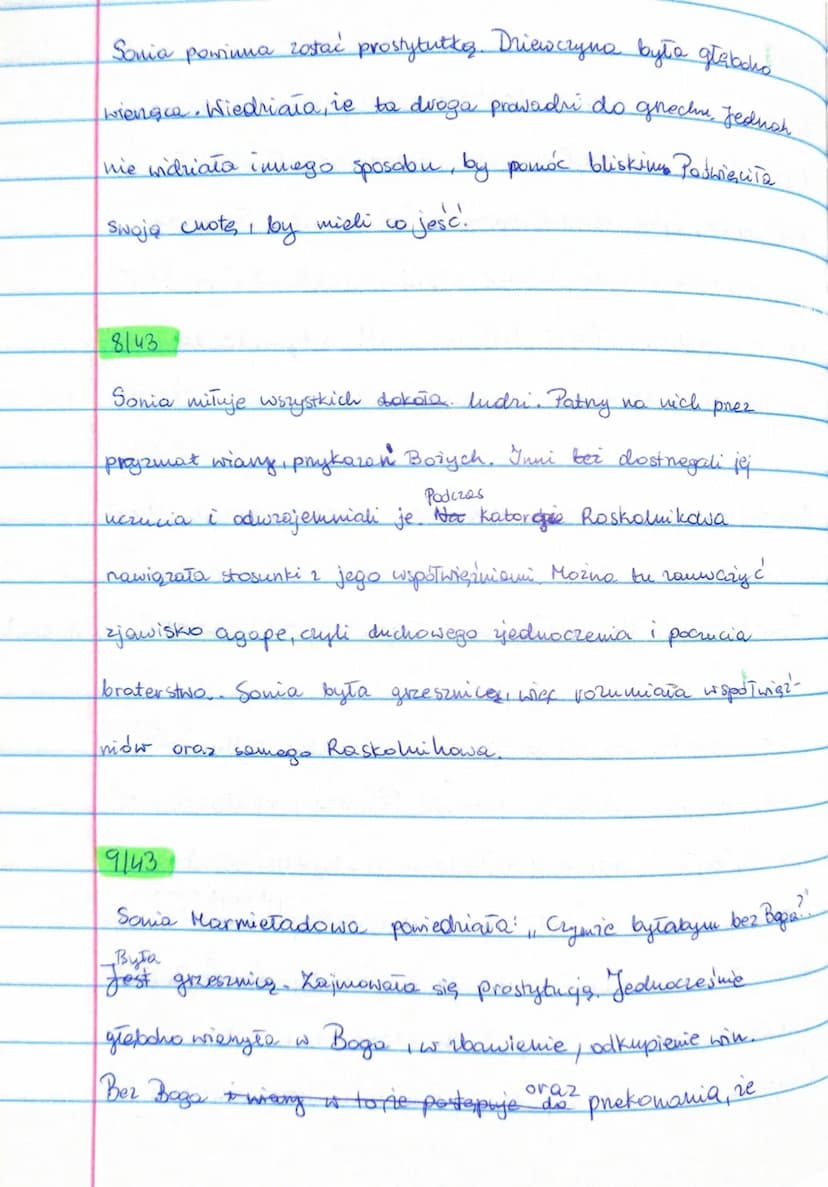 Sonia powinna zostać prostytutką. Dziewczyna była głęboko
wierząca. Wiedziała, że ta droga prowadzi do grzechu. Jednak
nie widziała innego sposobu, by pomóc bliskim. Poświęciła
swoją cnotę, by mieli co jeść.
8/43
Sonia miłuje wszystkich dokoła ludzi. Patrzy na nich przez
pryzmat wiary, przykazań Bożych. Inni też dostrzegali jej
Podczas
uczucia i odwzajemniali je. Na katordze Raskolnikowa
nawiązała stosunki z jego współwięźniami. Można tu zauważyć
zjawisko agape, czyli duchowego zjednoczenia i poczucia
braterstwa. Sonia była grzesznicą, więc rozumiała współwięź-
niów oraz samego Raskolnikowa.
9/43
Sonia Marmieładowa powiedziała: "Czymże byłabym bez Boga?"
Była
Jest grzesznicą. Zajmowała się prostytucją. Jednocześnie
głęboko wierzyła w Boga, w zbawienie, odkupienie win.
oraz
Bez Boga i wiary w to że postępuje do przekonania, że